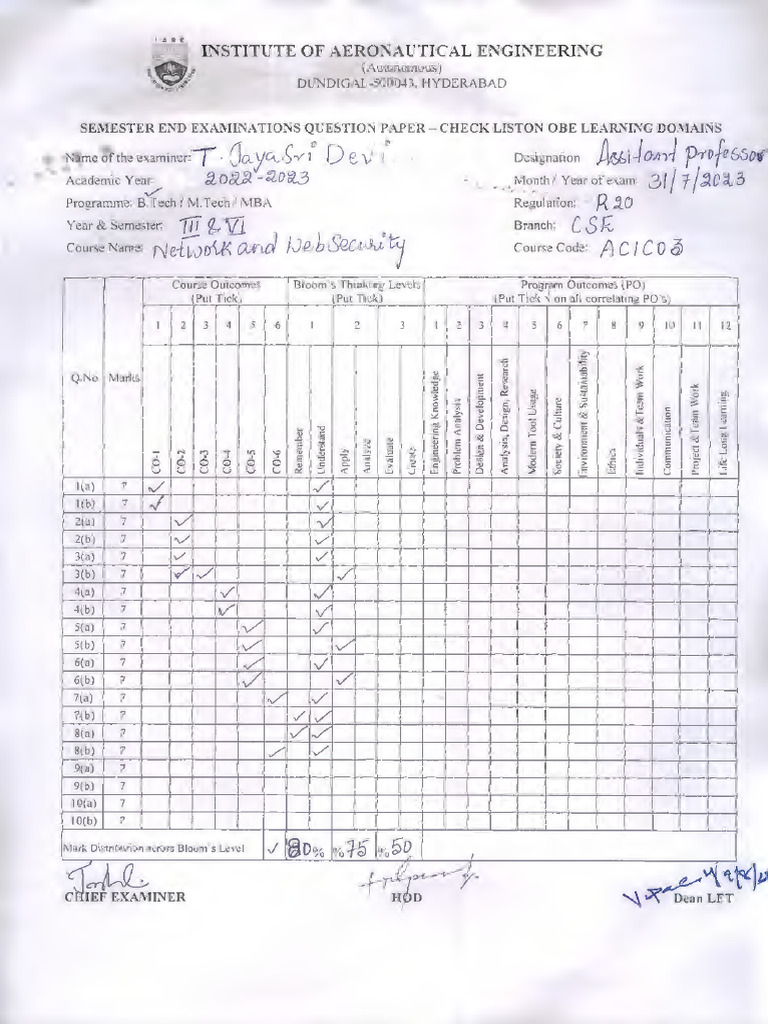 IARE
INSTITUTE OF AERONAUTICAL ENGINEERING
(Autonomous)
DUNDIGAL -500043, HYDERABAD
SEMESTER END EXAMINATIONS QUESTION PAPER – CHECK LISTON OBE LEARNING DOMAINS
Name of the examiner: T. JayaSri Devi Designation Assitant Professor
Academic Year 2022-2023 Month / Year of exam 31/7/2023
Programme: B.Tech / M.Tech / MBA Regulation: R20
Year & Semester: III & VI Branch: CSE
Course Name: Network and Web Security Course Code: ACIC03
Course Outcomes Bloom's Thinking Levels Program Outcomes (PO)
(Put Tick) (Put Tick) (Put Tick √ on all correlating PO's)
1 2 3 4 5 6 1 2 3 1 2 3 4 5 6 7 8 9 10 11 12
Q.No Marks CO-1 CO-2 CO-3 CO-4 CO-5 CO-6 Remember Understand Apply Analyze Evaluate Create Engineering Knowledge Problem Analysis Design & Development Analysis, Design, Research Modern Tool Usage Society & Culture Environment & Sustainability Ethics Individuals & Team Work Communication Project & Team Work Life Long Learning
1(a) 7 ✓ ✓
1(b) 7 ✓ ✓
2(a) 7 ✓ ✓
2(b) 7 ✓ ✓
3(a) 7 ✓ ✓
3(b) 7 ✓ ✓ ✓
4(a) 7 ✓ ✓
4(b) 7 ✓ ✓
5(a) 7 ✓ ✓
5(b) 7 ✓ ✓
6(a) 7 ✓ ✓
6(b) 7 ✓ ✓
7(a) 7 ✓ ✓
7(b) 7 ✓ ✓
8(a) 7 ✓ ✓
8(b) 7 ✓ ✓
9(a) 7
9(b) 7
10(a) 7
10(b) 7
Mark Distribution across Bloom's Level ✓ 80% % 75 % 50
CHIEF EXAMINER HOD Dean LET